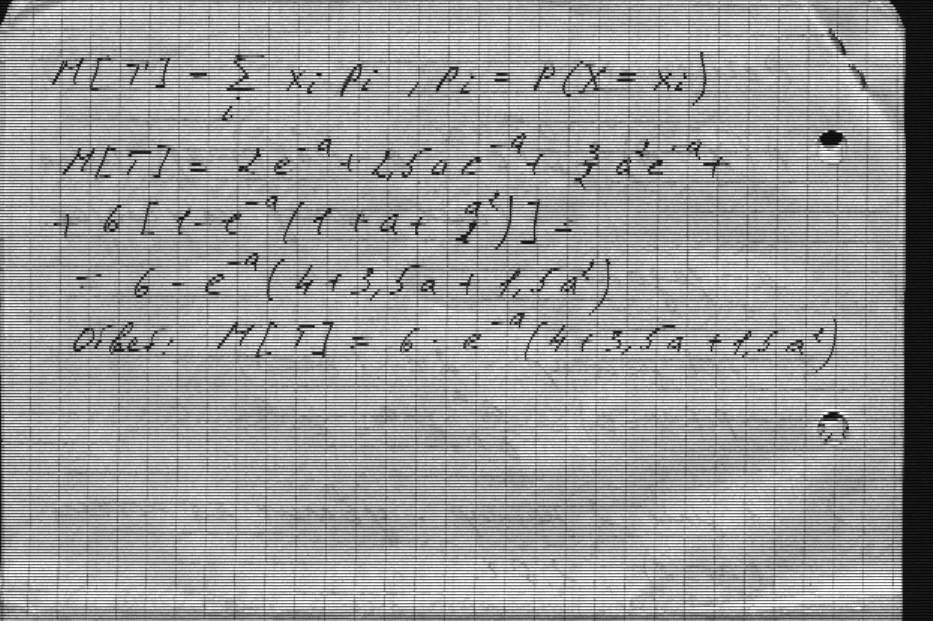 M[T] = ∑_i x_i p_i , p_i = P(X = x_i)
M[T] = 2e^{-a} + 2,5ae^{-a} + \frac{3}{2} a^2e^{-a} +
+ 6 [1 - e^{-a}(1 + a + \frac{a^2}{2})] =
= 6 - e^{-a}(4 + 3,5a + 1,5a^2)
Ответ: M[T] = 6 - e^{-a}(4 + 3,5a + 1,5a^2)